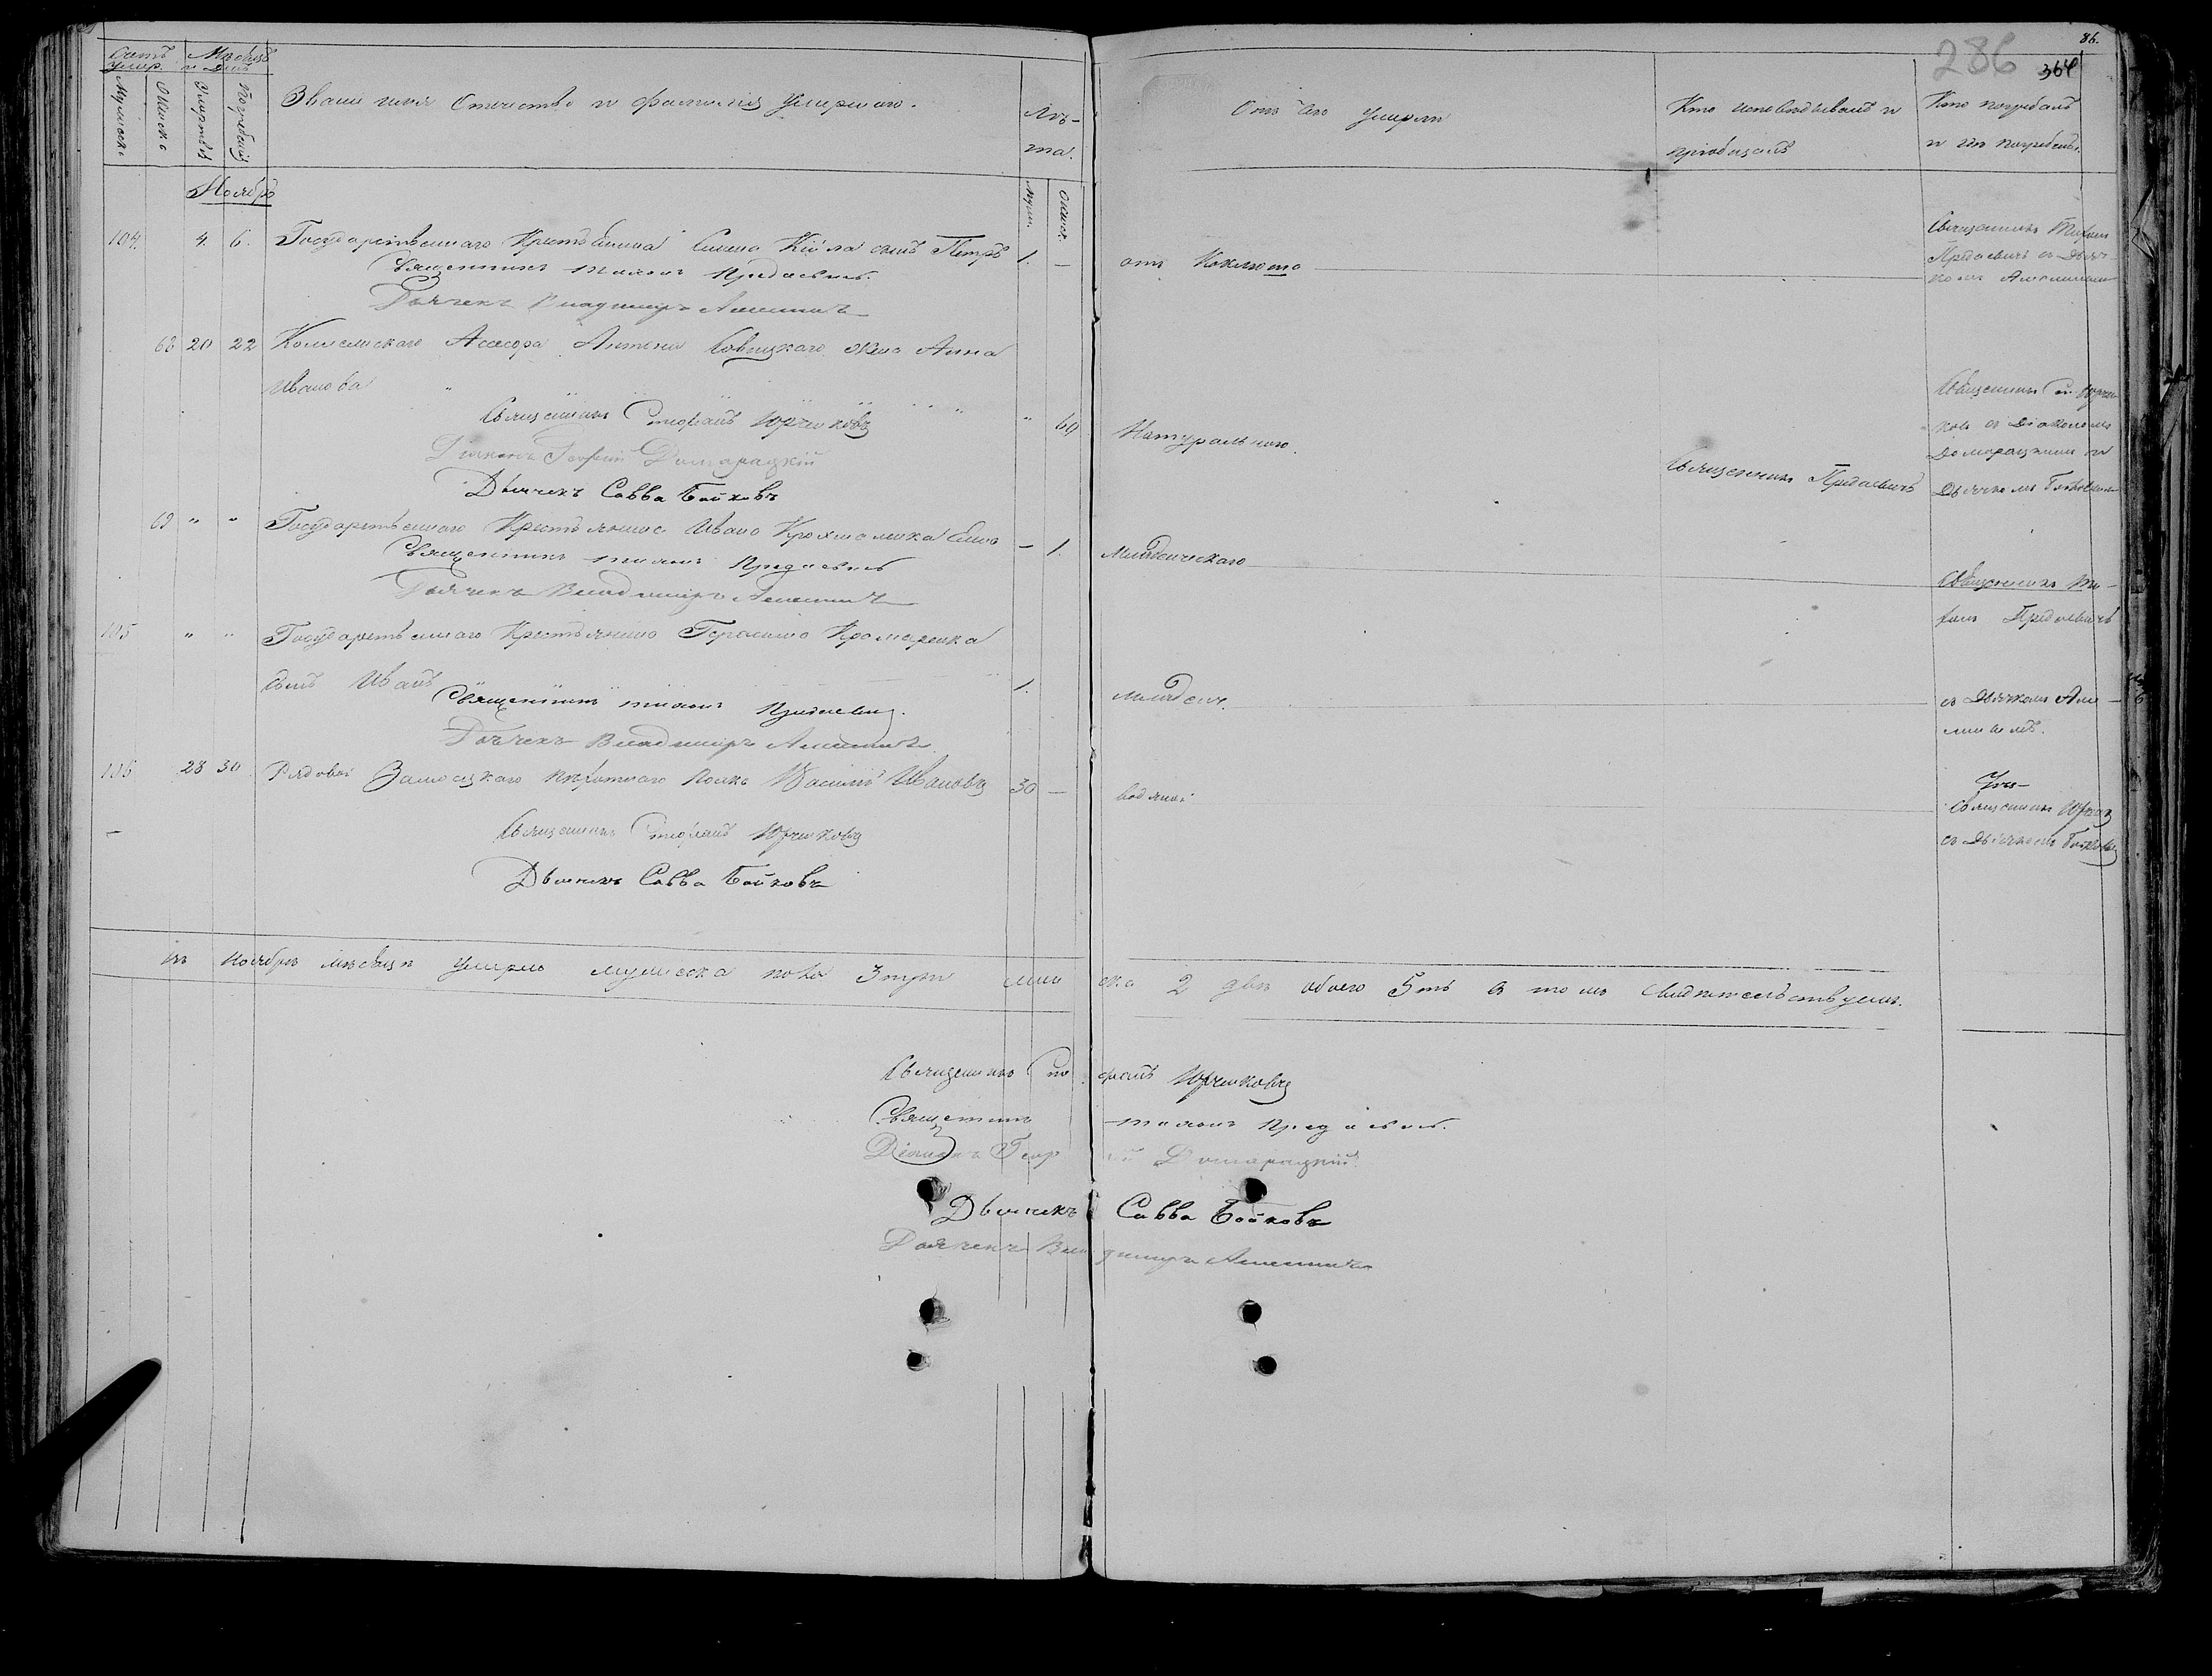 286
86.
364
Счетъ умер.
Мѣсяцъ и День
Мужеска
Женска
Смерти
Погребенія
Званіе имя Отчество и фамилія умершаго.
Лѣ-
та.
Муж.
Женск.
Отъ чего умерли
Кто исповѣдывалъ и
пріобщалъ
Кто погребалъ
и гдѣ погребены.
Ноябрь
104. 4. 6. Государственнаго Крестьянина сынъ Петръ 1. —
Священникъ Тихонъ Предаевичъ.
Дьячекъ Владимиръ
отъ Коклюша
Священникъ Тихонъ
Предаевичъ съ Дьяч-
комъ
68 20 22 Коллежскаго Асесора Антона жена Анна
Иванова
Священникъ Стефанъ Юрченковъ " 60
Діаконъ Георгій Домарацкій
Дьячекъ Савва Бойковъ
Натуральною.
Священникъ Предаевичъ
Священникъ Ст. Юрчен-
ковъ съ Діакономъ
Домарацкимъ и
Дьячкомъ Бойковымъ
69 " " Государственнаго Крестьянина Ивана — 1.
Священникъ Тихонъ Предаевичъ
Дьячекъ Владимиръ
Младенческаго
Священникъ Ти-
хонъ Предаевичъ
105 " " Государственнаго Крестьянина Герасима Крамаренка
сынъ Иванъ 1.
Священникъ Тихонъ Предаевичъ.
Дьячекъ Владимиръ
Младенч.
съ Дьячкомъ
106 28 30 Рядовой Замосцкаго пѣхотнаго полка Василій Ивановъ 30 —
Священникъ Стефанъ Юрченковъ
Дьячекъ Савва Бойковъ
водяной
Священникъ Юрченк
съ Дьячкомъ Бойковы
въ Ноябрѣ мѣсяцѣ умерло мужеска пола 3 три женска 2 двѣ обоего 5ть въ томъ свидѣтельствуемъ.
Священникъ Стефанъ Юрченковъ
Священникъ Тихонъ Предаевичъ.
Діаконъ Георгій Домарацкій
Дьячекъ Савва Бойковъ
Дьячекъ Владимиръ